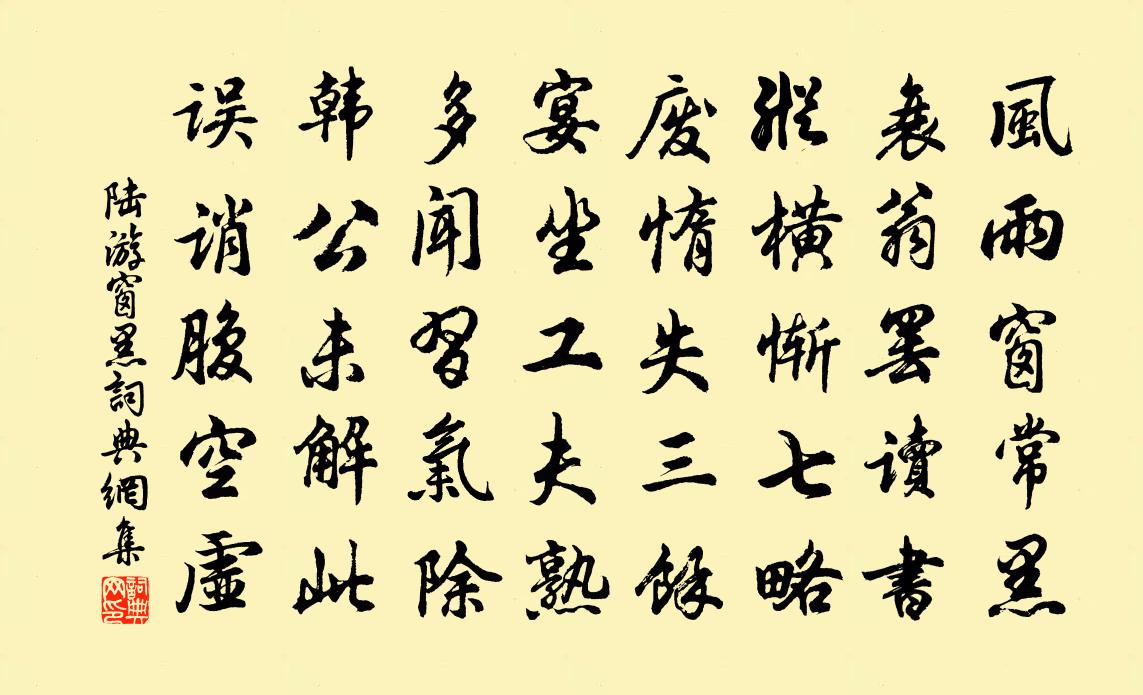 風雨窗常黑
衰翁罷讀書
縱橫慚七略
廢惰失三餘
宴坐工夫熟
多聞習氣除
韩公未解此
误誚腹空虛
陆游窗黑詞典網集
詞典網印